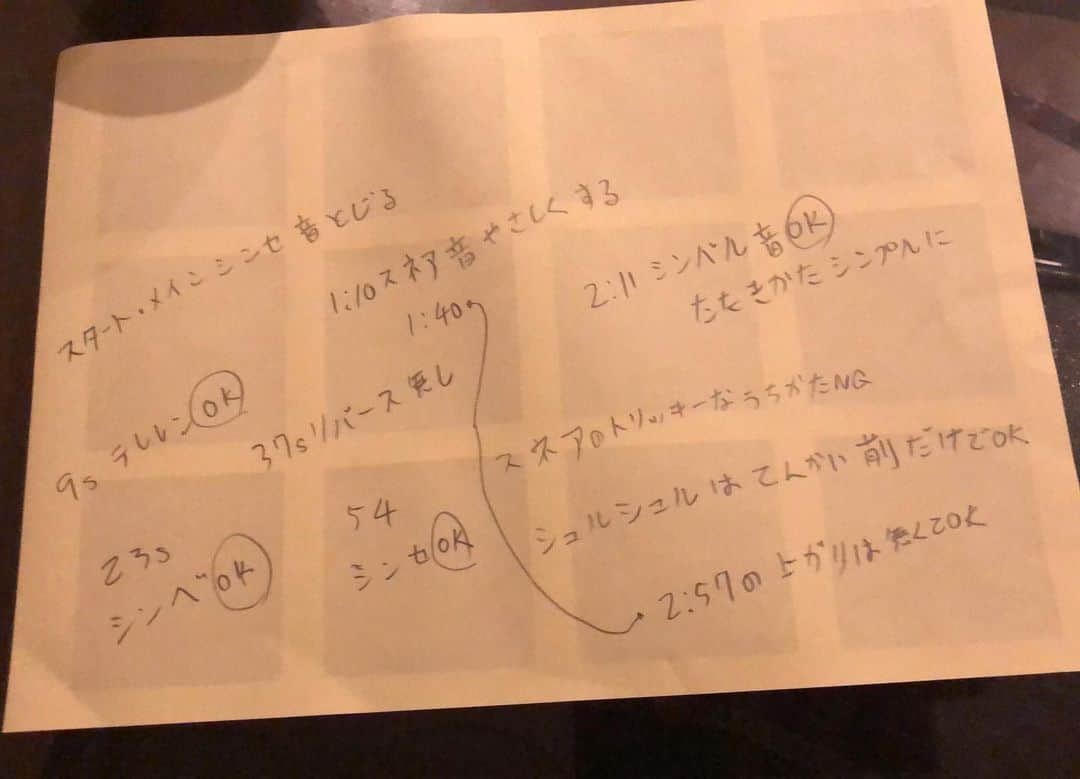 スタート・メインシンセ音とじる
9s テレレンOK
23s
シンベOK
37sリバース無し
54
シンセOK
1:10スネア音やさしくする
1:40
2:11シンバル音OK
たたきかたシンプルに
スネアのトリッキーなうちかたNG
シュルシュルはてんかい前だけでOK
2:57の上がりは無くてOK